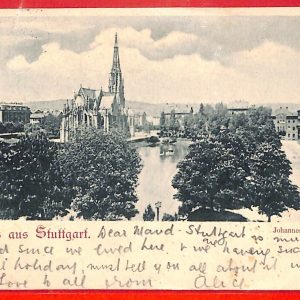 s aus Stuttgart.
Johannes
Dear Maud - Stuttgart is mu
d since we lived here & we having suc
l holiday, must tell you all about it w
ove to all from Alice